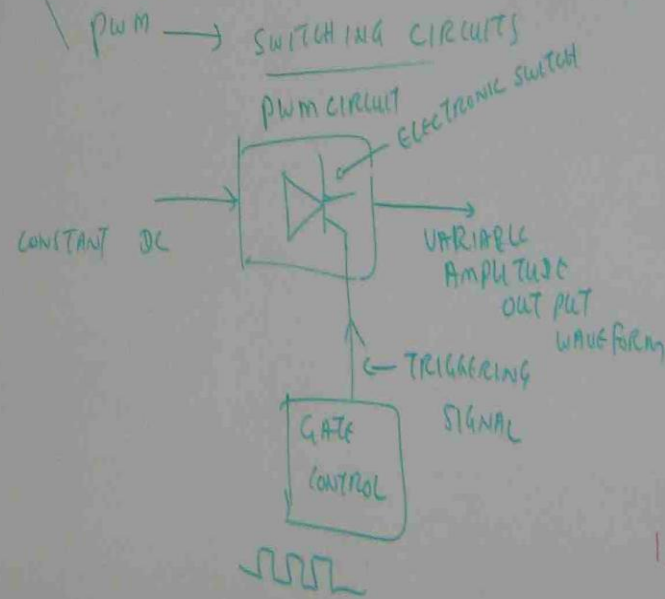 PWM → SWITCHING CIRCUITS
PWM CIRCUIT
ELECTRONIC SWITCH
CONSTANT DC
VARIABLE
AMPLITUDE
OUTPUT
WAVEFORM
← TRIGGERING
SIGNAL
GATE
CONTROL